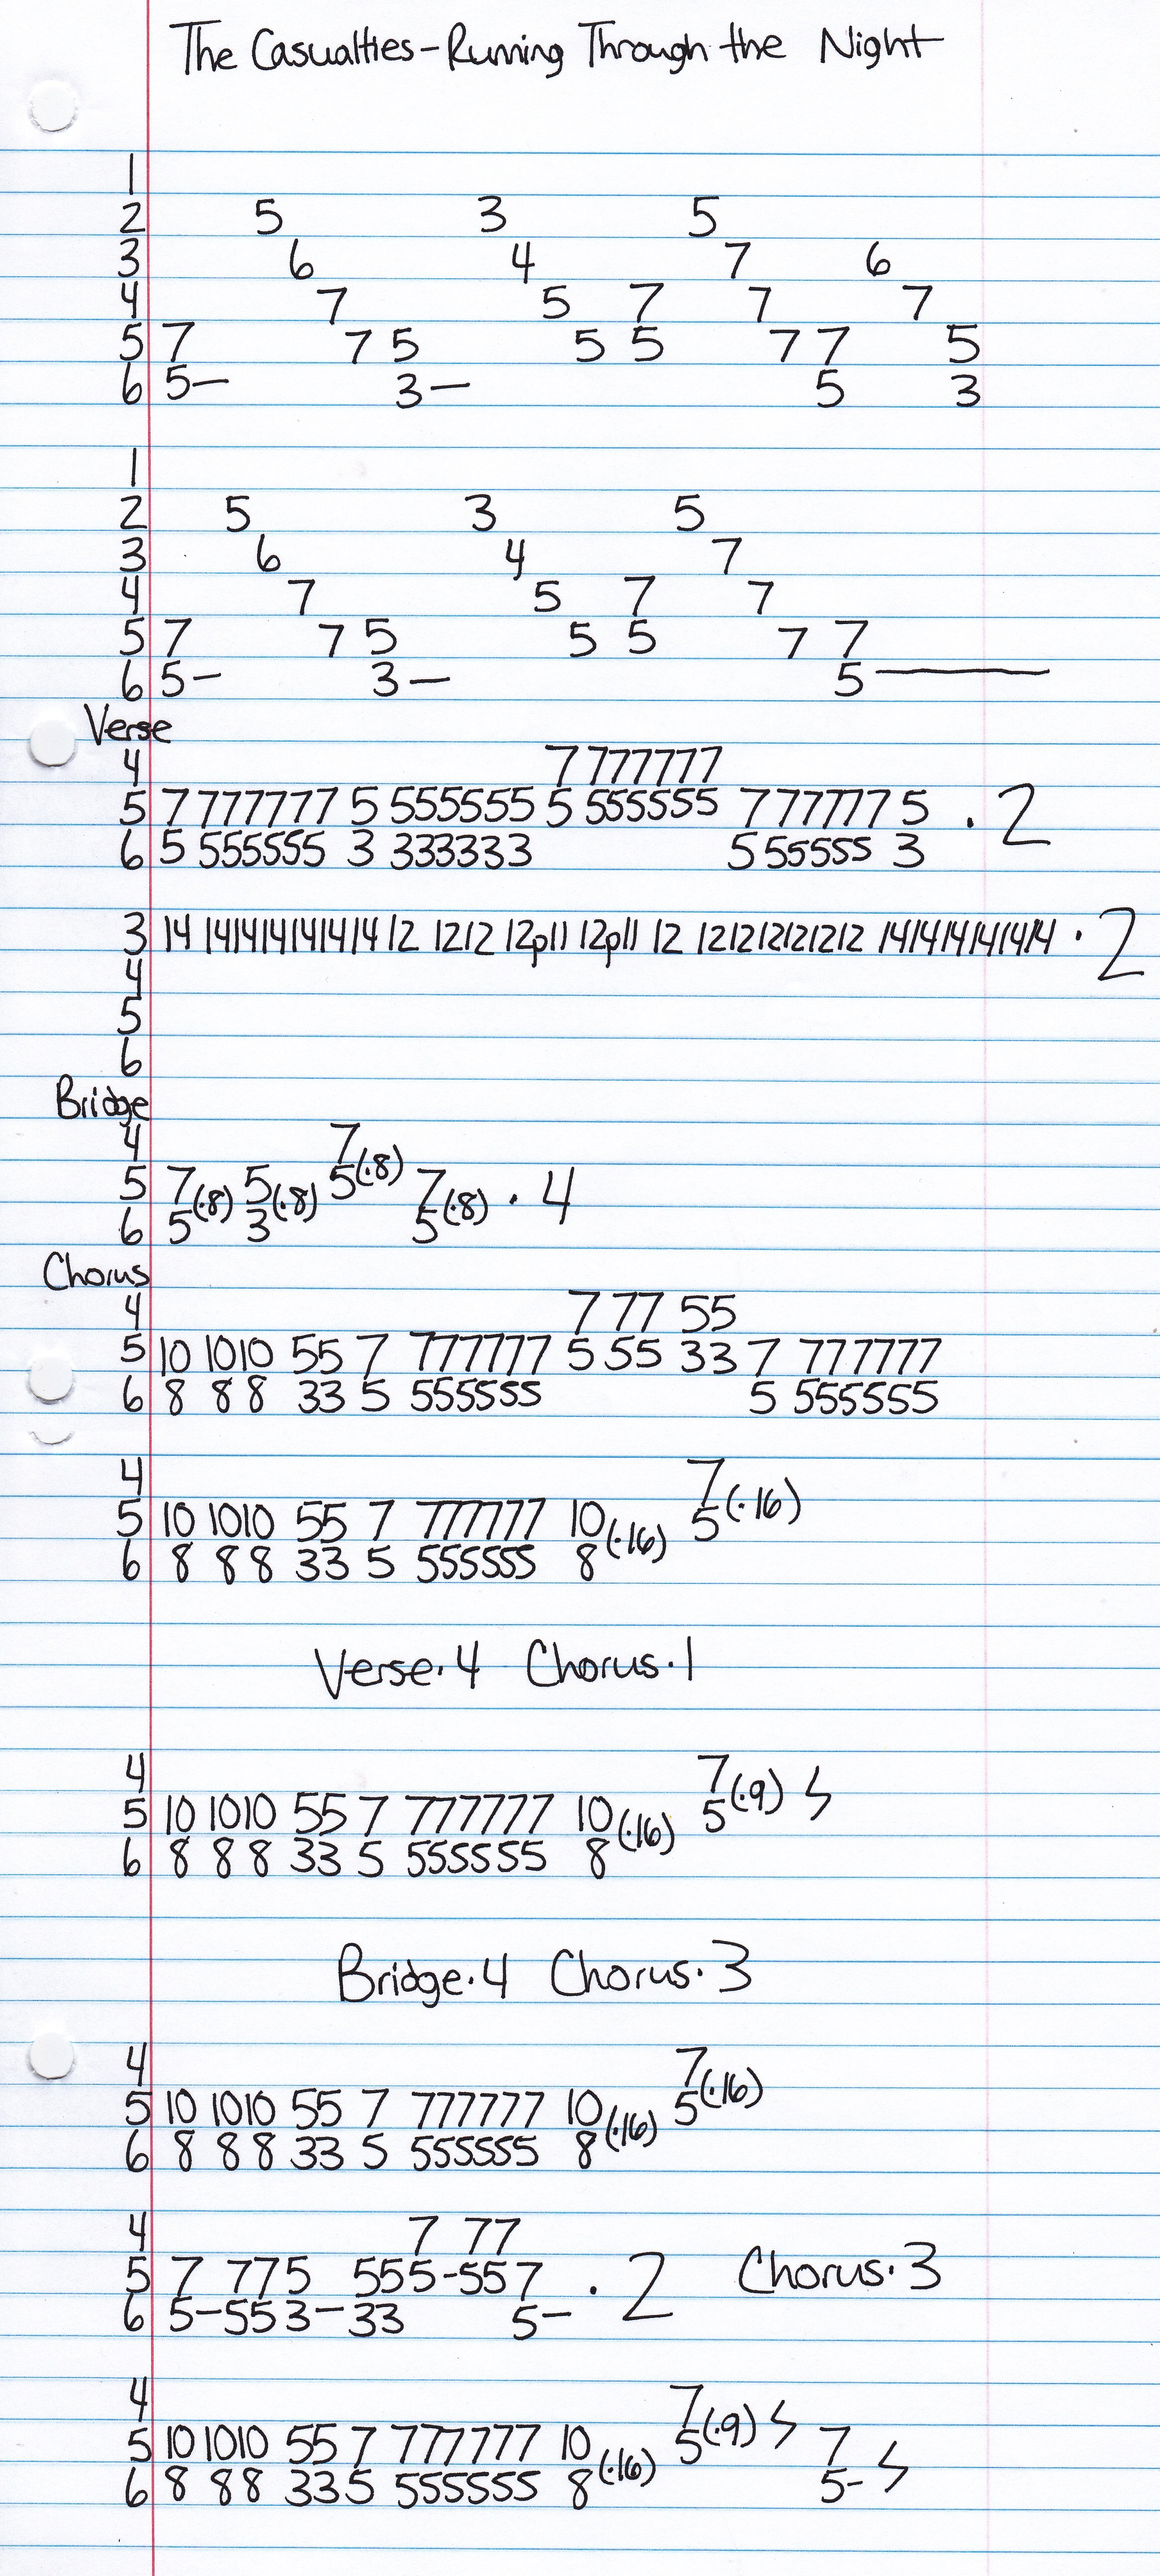 The Casualties-Running Through the Night
1
2 5 3 5
3 6 4 7 6
4 7 5 7 7 7
5 7 7 5 5 5 7 7 5
6 5— 3— 5 3
1
2 5 3 5
3 6 4 7
4 7 5 7 7
5 7 7 5 5 5 7 7
6 5— 3— 5———
Verse
4 7 777777
5 7 777777 5 555555 5 555555 7 777777 5 · 2
6 5 555555 3 333333 5 55555 3
3 14 141414141414 12 1212 12p11 12p11 12 121212121212 141414141414 · 2
4
5
6
Bridge
4 7
5 7(·8) 5(·8) 5(·8) 7(·8) · 4
6 5 3 5
Chorus
4 7 77 55
5 10 1010 55 7 777777 5 55 33 7 777777
6 8 8 8 33 5 555555 5 555555
4 7
5 10 1010 55 7 777777 10 5(·16)
6 8 8 8 33 5 555555 8(·16)
Verse·4 Chorus·1
4 7
5 10 1010 55 7 777777 10 5(·9)
6 8 8 8 33 5 555555 8(·16)
Bridge·4 Chorus·3
4 7
5 10 1010 55 7 777777 10 5(·16)
6 8 8 8 33 5 555555 8(·16)
4 7 77
5 7 775 555-557 · 2 Chorus·3
6 5-553-33 5-
4 7
5 10 1010 55 7 777777 10 5(·9) 7
6 8 88 33 5 555555 8(·16) 5-